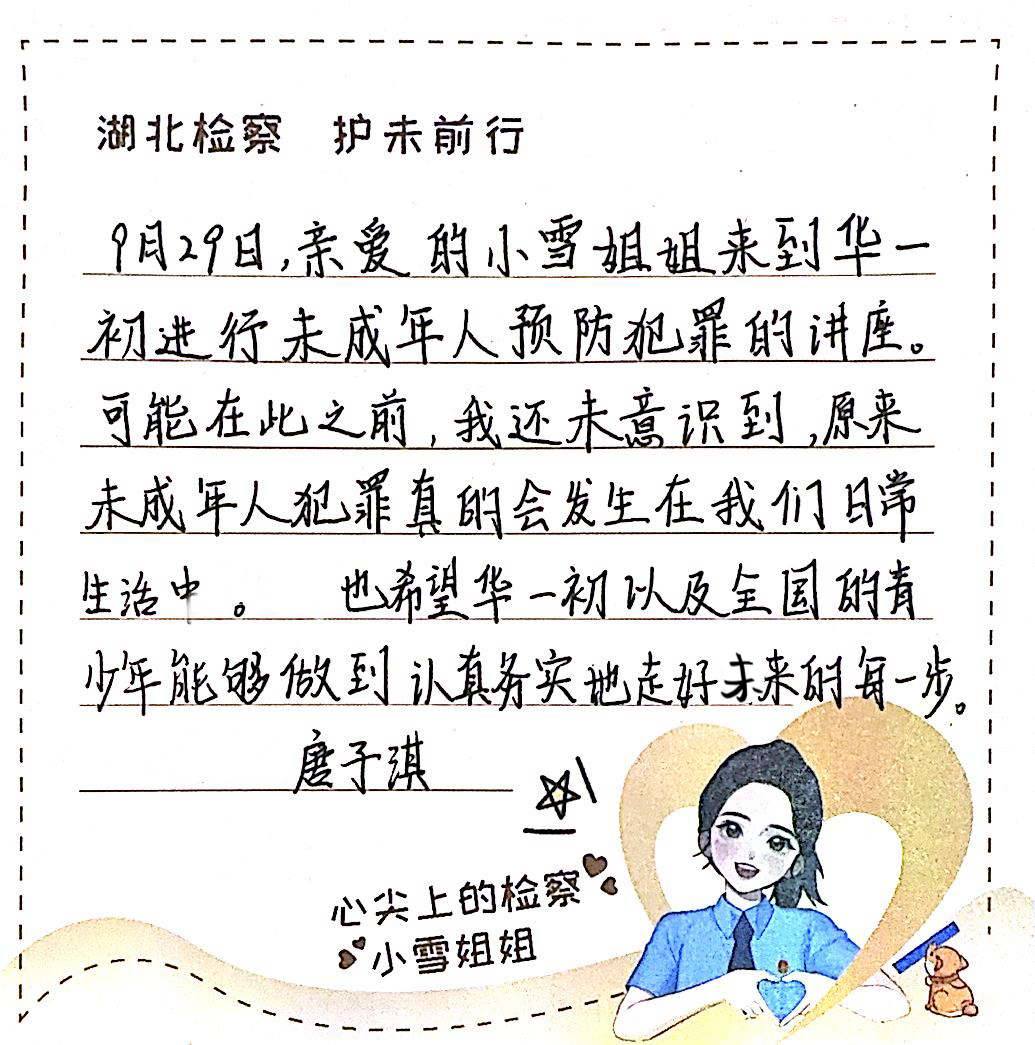 湖北检察 护未前行
9月29日,亲爱的小雪姐姐来到华一
初进行未成年人预防犯罪的讲座。
可能在此之前,我还未意识到,原来
未成年人犯罪真的会发生在我们日常
生活中。 也希望华一初以及全国的青
少年能够做到认真务实地走好未来的每一步。
唐子淇
心尖上的检察
小雪姐姐